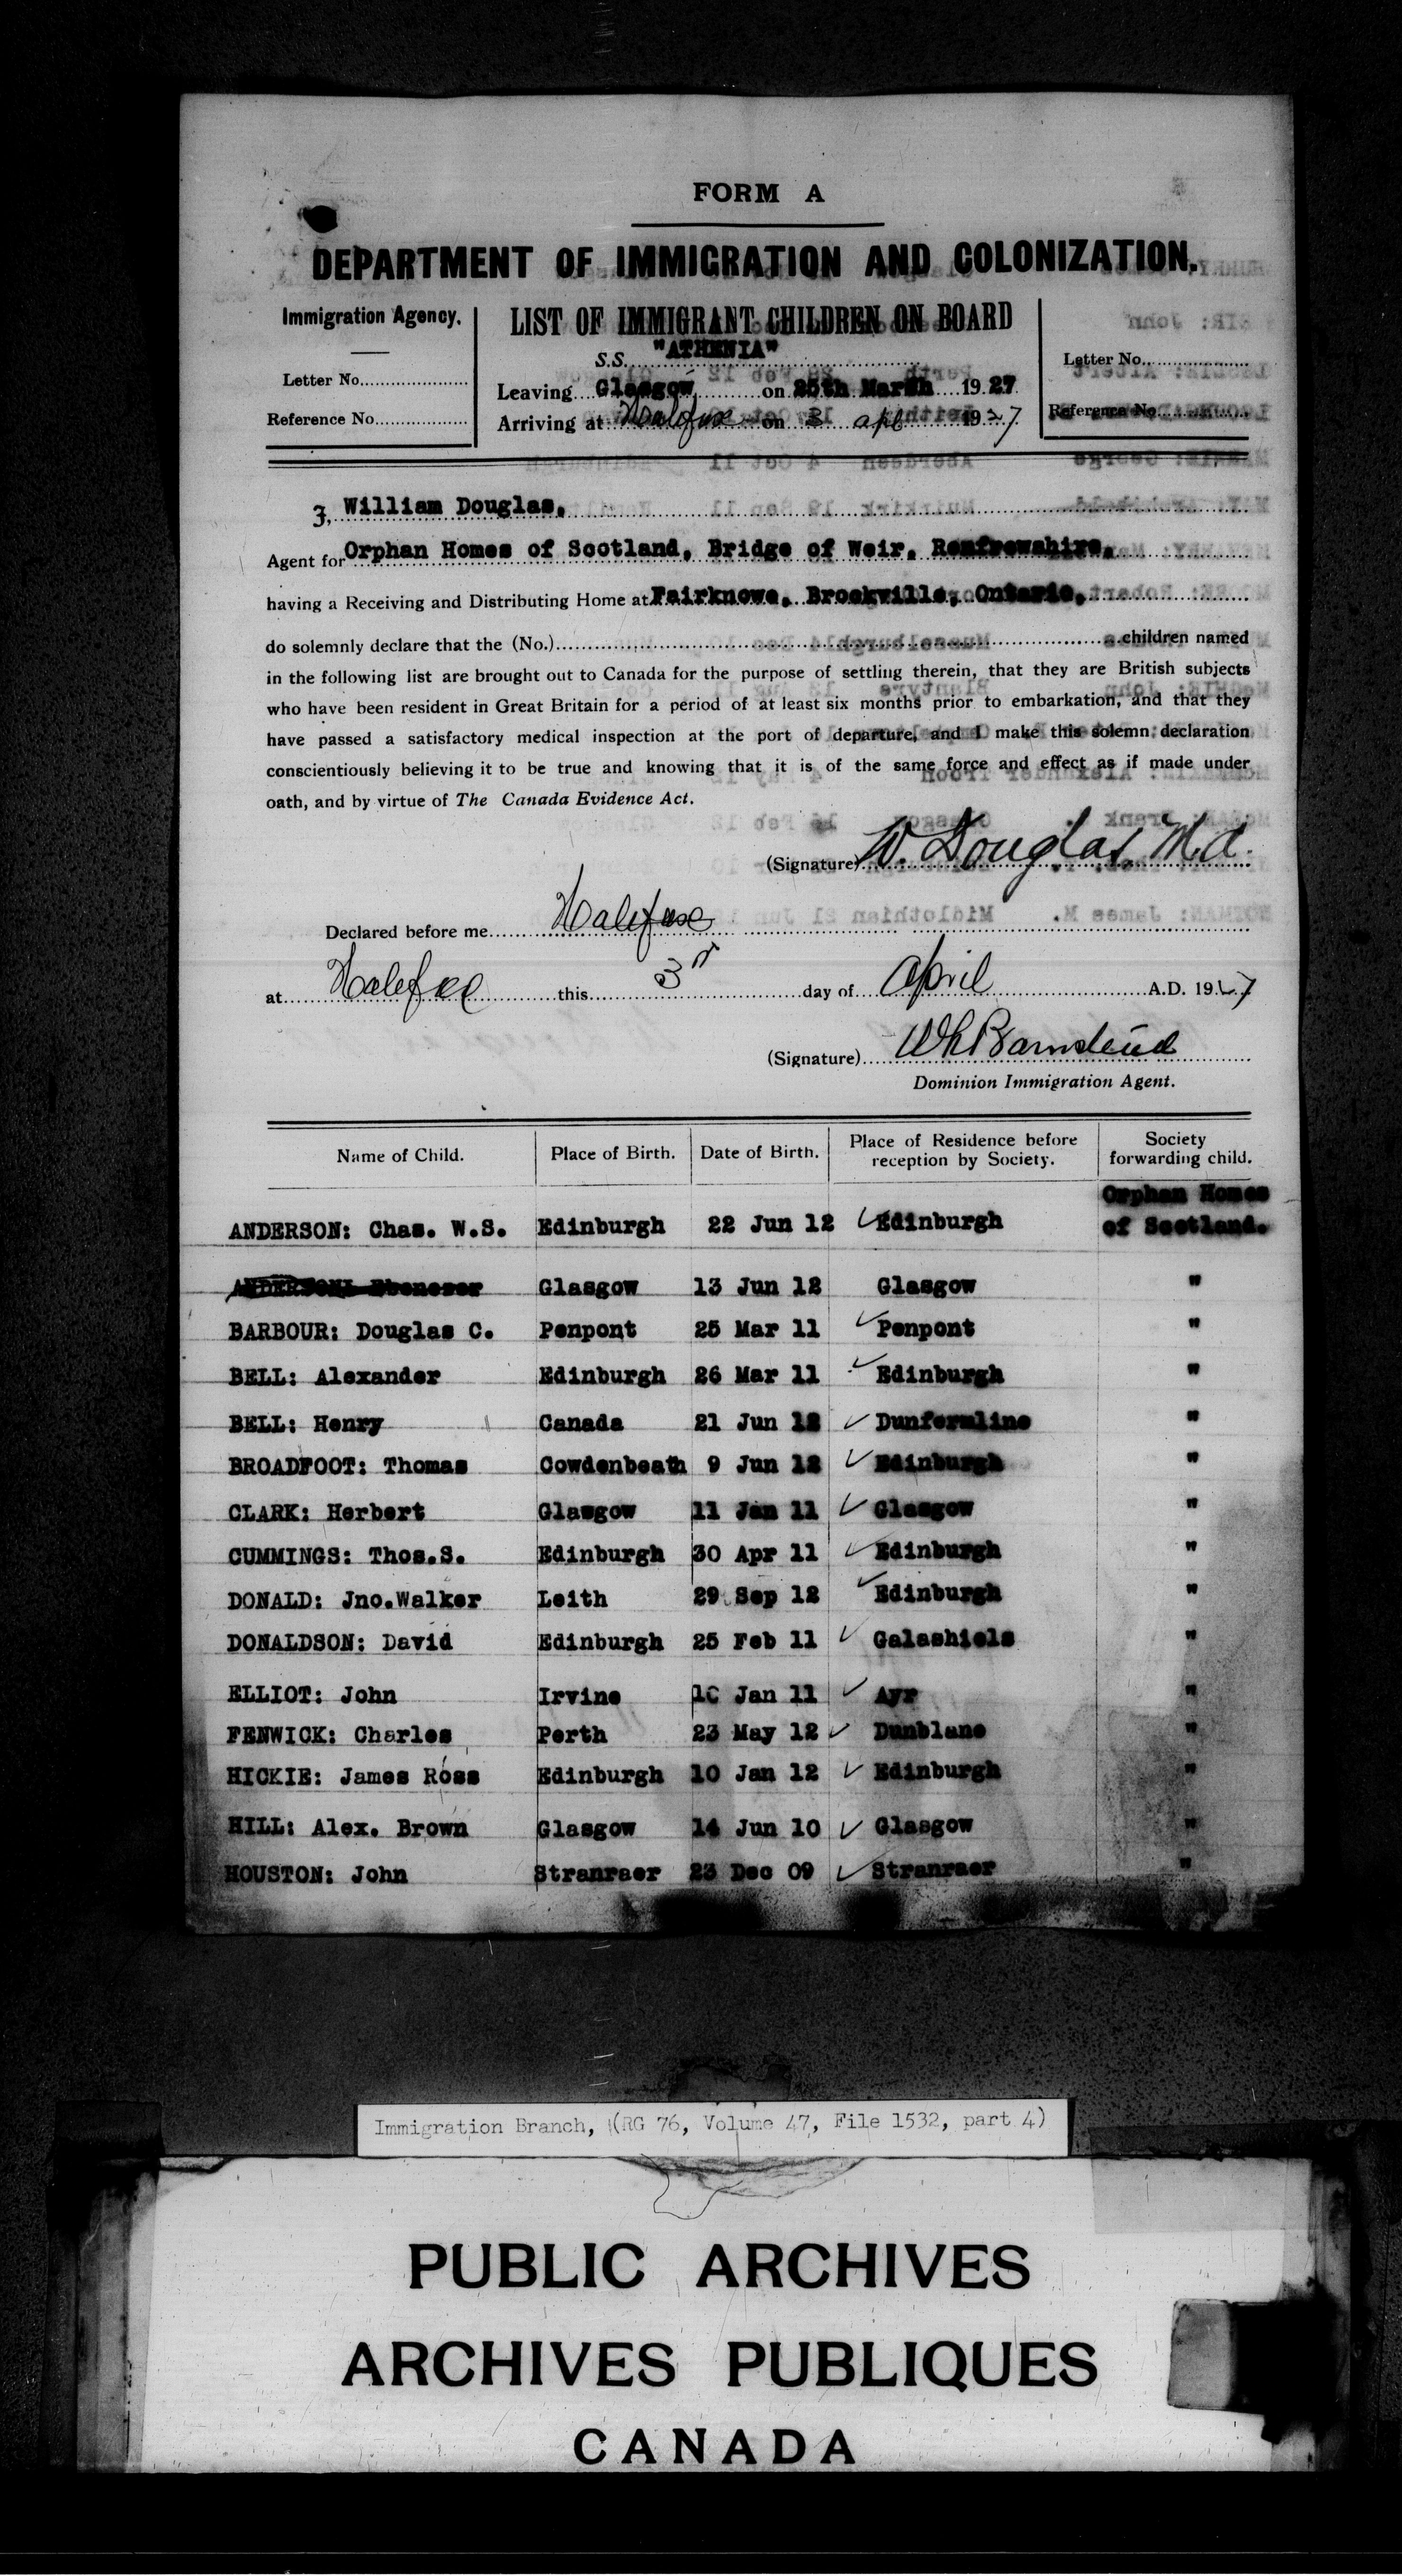 FORM A
DEPARTMENT OF IMMIGRATION AND COLONIZATION.
Immigration Agency.
Letter No.
Reference No.
LIST OF IMMIGRANT CHILDREN ON BOARD
S.S. "ATHENIA"
Leaving Glasgow on 25th March 1927
Arriving at Halifax on 3 apl 1927
Letter No.
Reference No.
I, William Douglas,
Agent for Orphan Homes of Scotland, Bridge of Weir, Renfrewshire,
having a Receiving and Distributing Home at Fairknowe, Brockville, Ontario,
do solemnly declare that the (No.) children named
in the following list are brought out to Canada for the purpose of settling therein, that they are British subjects
who have been resident in Great Britain for a period of at least six months prior to embarkation, and that they
have passed a satisfactory medical inspection at the port of departure, and I make this solemn declaration
conscientiously believing it to be true and knowing that it is of the same force and effect as if made under
oath, and by virtue of The Canada Evidence Act.
(Signature) W. Douglas M.d.
Declared before me Halifax
at Halifax this 3rd day of April A.D. 1927
(Signature)
Dominion Immigration Agent.
Name of Child. Place of Birth. Date of Birth. Place of Residence before reception by Society. Society forwarding child.
ANDERSON: Chas. W.S. Edinburgh 22 Jun 12 Edinburgh Orphan Homes of Scotland.
ANDERSON: Ebenezer Glasgow 13 Jun 12 Glasgow "
BARBOUR: Douglas C. Penpont 25 Mar 11 Penpont "
BELL: Alexander Edinburgh 26 Mar 11 Edinburgh "
BELL: Henry Canada 21 Jun 12 Dunfermline "
BROADFOOT: Thomas Cowdenbeath 9 Jun 12 Edinburgh "
CLARK: Herbert Glasgow 11 Jan 11 Glasgow "
CUMMINGS: Thos.S. Edinburgh 30 Apr 11 Edinburgh "
DONALD: Jno.Walker Leith 29 Sep 12 Edinburgh "
DONALDSON: David Edinburgh 25 Feb 11 Galashiels "
ELLIOT: John Irvine Jan 11 Ayr "
FENWICK: Charles Perth 23 May 12 Dunblane "
HICKIE: James Ross Edinburgh 10 Jan 12 Edinburgh "
HILL: Alex. Brown Glasgow 14 Jun 10 Glasgow "
HOUSTON: John Stranraer 23 Dec 09 Stranraer "
Immigration Branch, (RG 76, Volume 47, File 1532, part 4)
PUBLIC ARCHIVES
ARCHIVES PUBLIQUES
CANADA